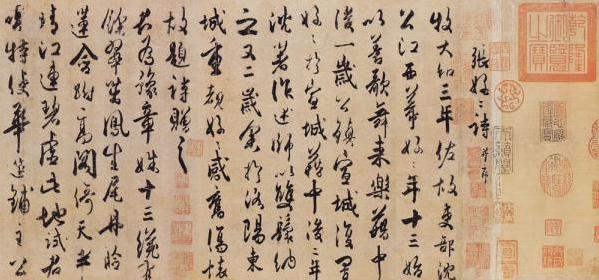 乾隆御覽之寶
張好〻詩 并序
牧大和三年佐故吏部沈
公江西幕好〻年十三始
以善歌舞來樂籍中
後一歲公鎮宣城復置
好〻於宣城籍中後二年
沈著作述師以雙鬟納
之又二歲余於洛陽東
城重覩好〻感舊傷懷
故題詩贈之
君為豫章姝十三纔有
餘翠茁鳳生尾丹臉
蓮含跗高閣倚天半
晴江連碧虛此地試君
唱特使華筵鋪主公